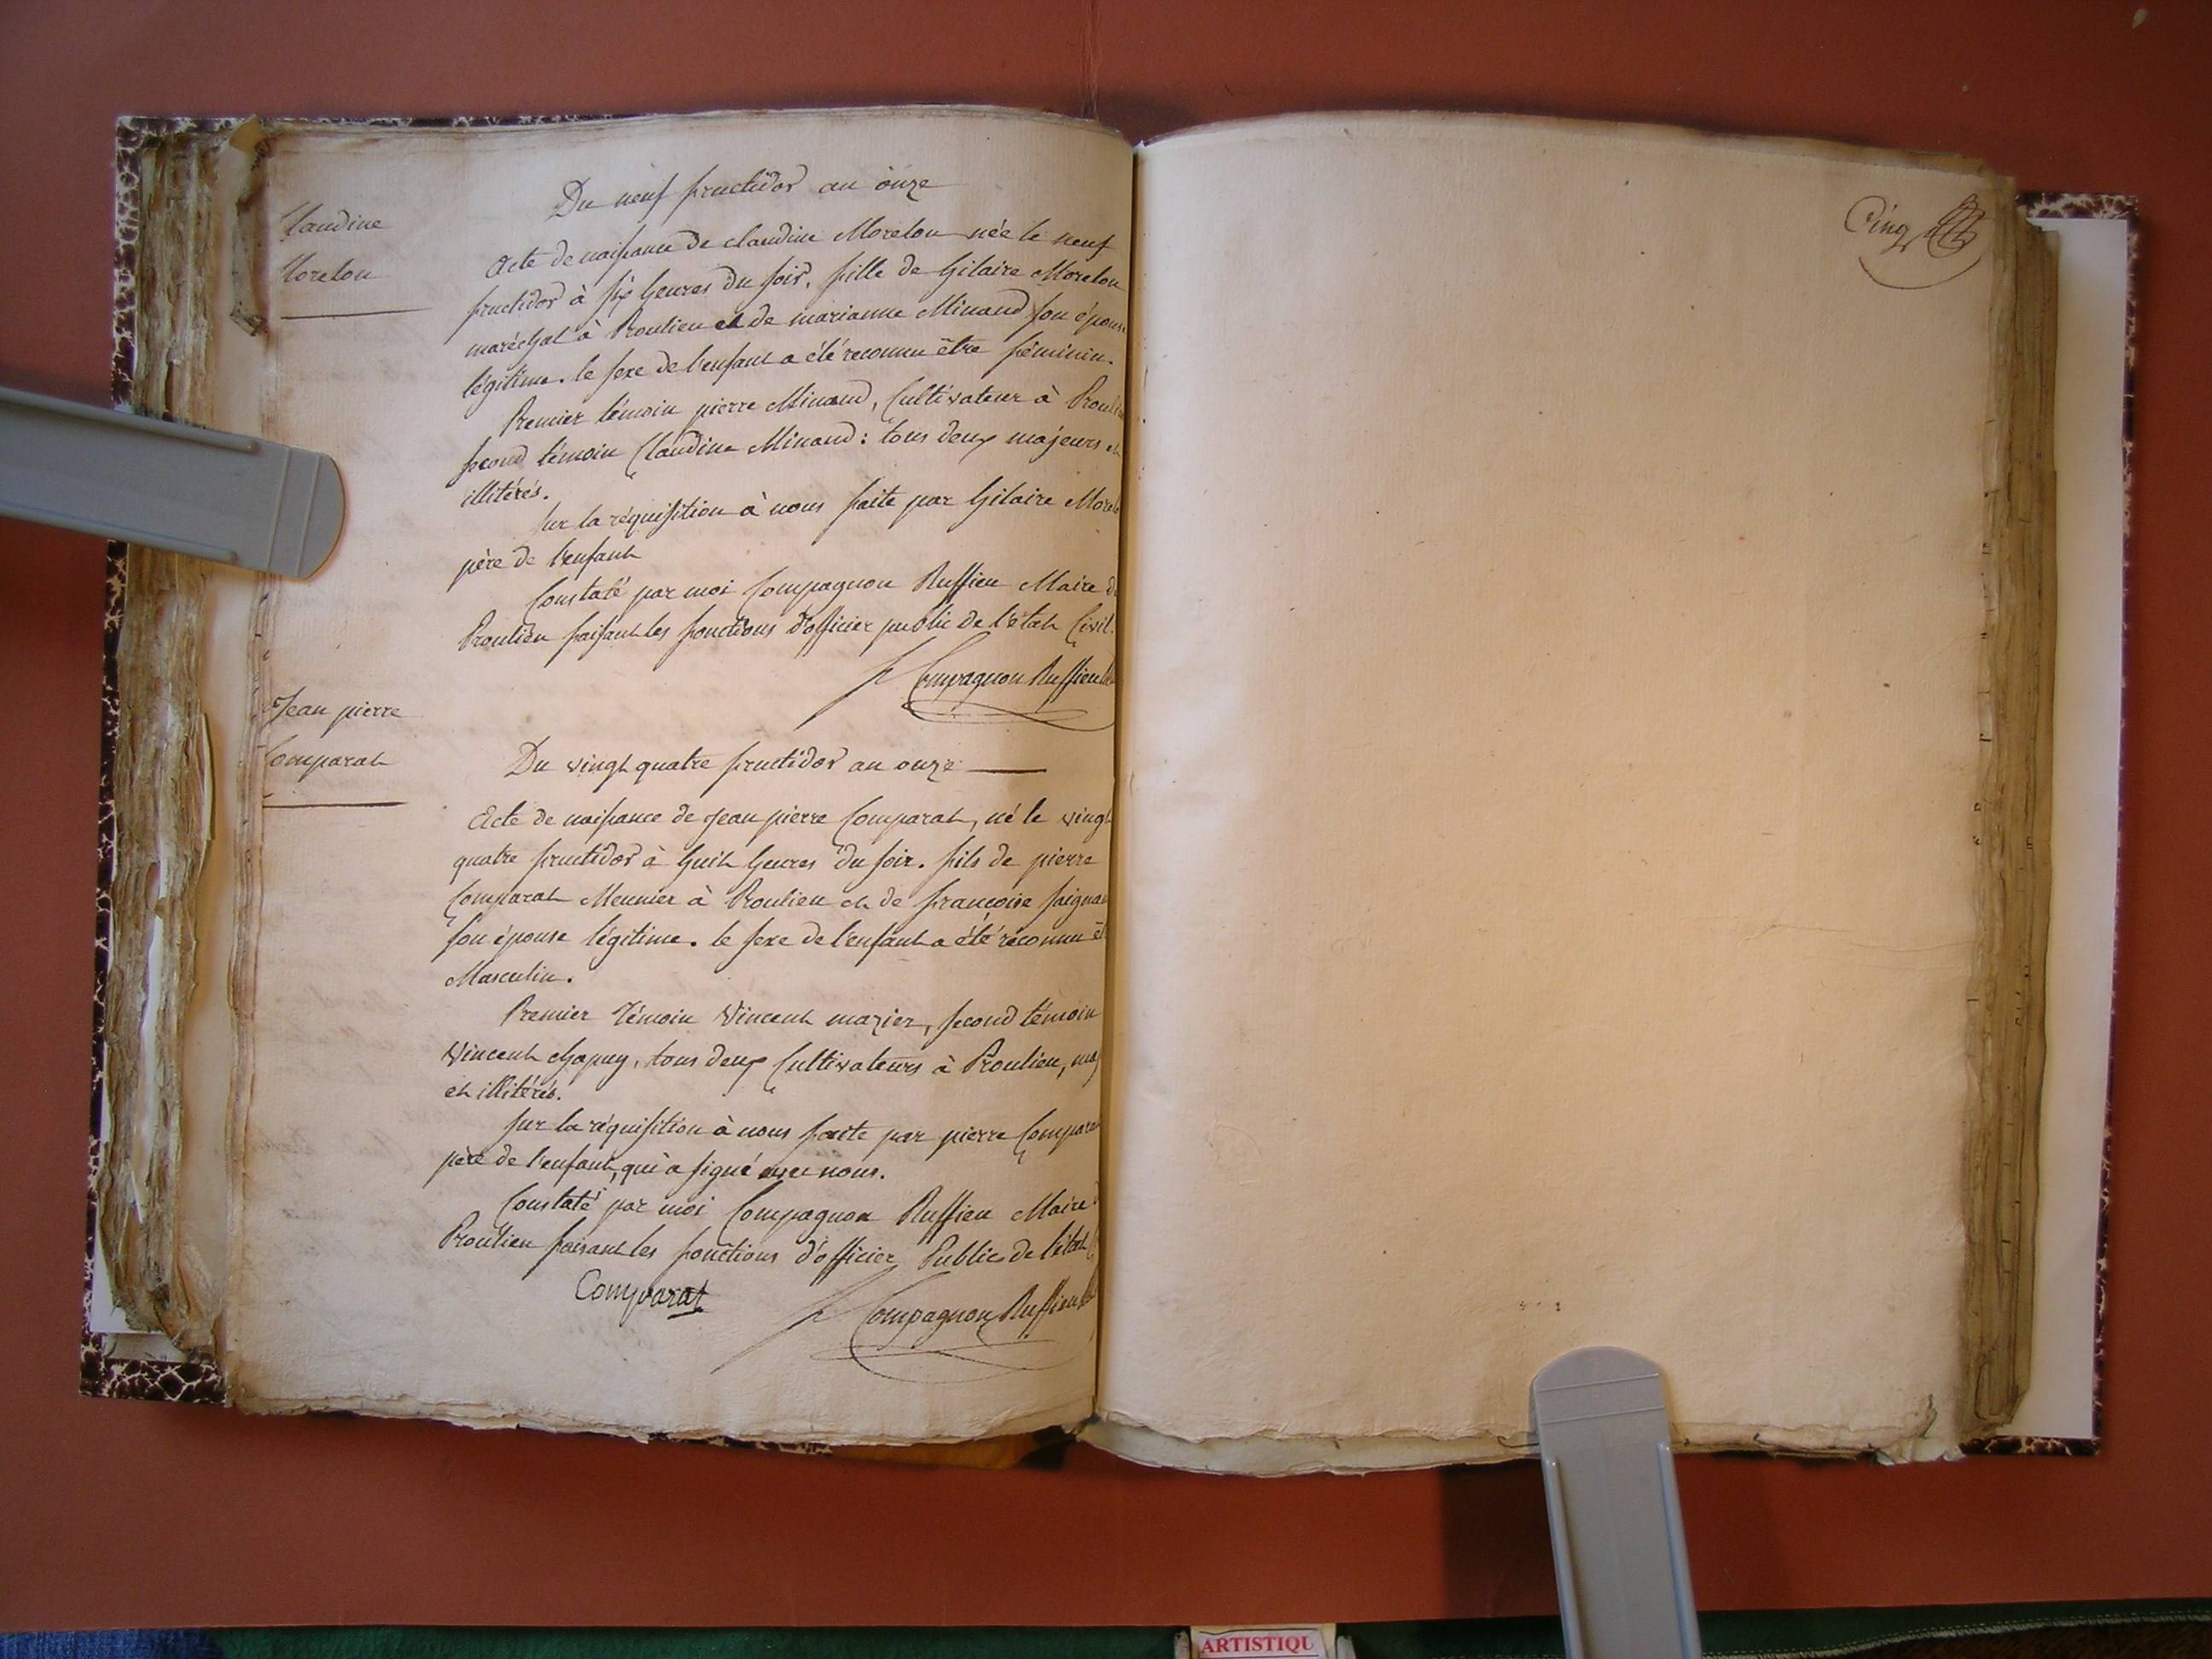 Du neuf fructidor an onze
Claudine
Morelon
Acte de naissance de Claudine Morelon née le neuf
fructidor à six heures du soir. fille de hilaire Morelon
maréchal à Proulieu et de marianne Minand son épouse
légitime. le sexe de l'enfant a été reconnu être féminin.
Premier témoin pierre Minand, Cultivateur à
second témoin Claudine Minand: tous deux majeurs et
illitérés.
Sur la réquisition à nous faite par hilaire
père de l'enfant
Constaté par moi Compagnon Ruffieu Maire
Proulieu faisant les fonctions d'officier public de l'état Civil.
Compagnon Ruffieu
Jean pierre
Comparat
Du vingt quatre fructidor an onze
Acte de naissance de Jean pierre Comparat, né le vingt
quatre fructidor à huit heures du soir. fils de pierre
Comparat Meunier à Proulieu et de françoise
son épouse légitime. le sexe de l'enfant a été reconnu
Masculin.
Premier Témoin Vincent mazier, second témoin
Vincent chapuy, tous deux Cultivateurs à Proulieu, maj
et illitérés.
Sur la réquisition à nous faite par pierre
père de l'enfant, qui a signé avec nous.
Constaté par moi Compagnon Ruffieu Maire
Proulieu faisant les fonctions d'officier Public de l'état
Comparat
Compagnon Ruffieu
Cinq
ARTISTIQU